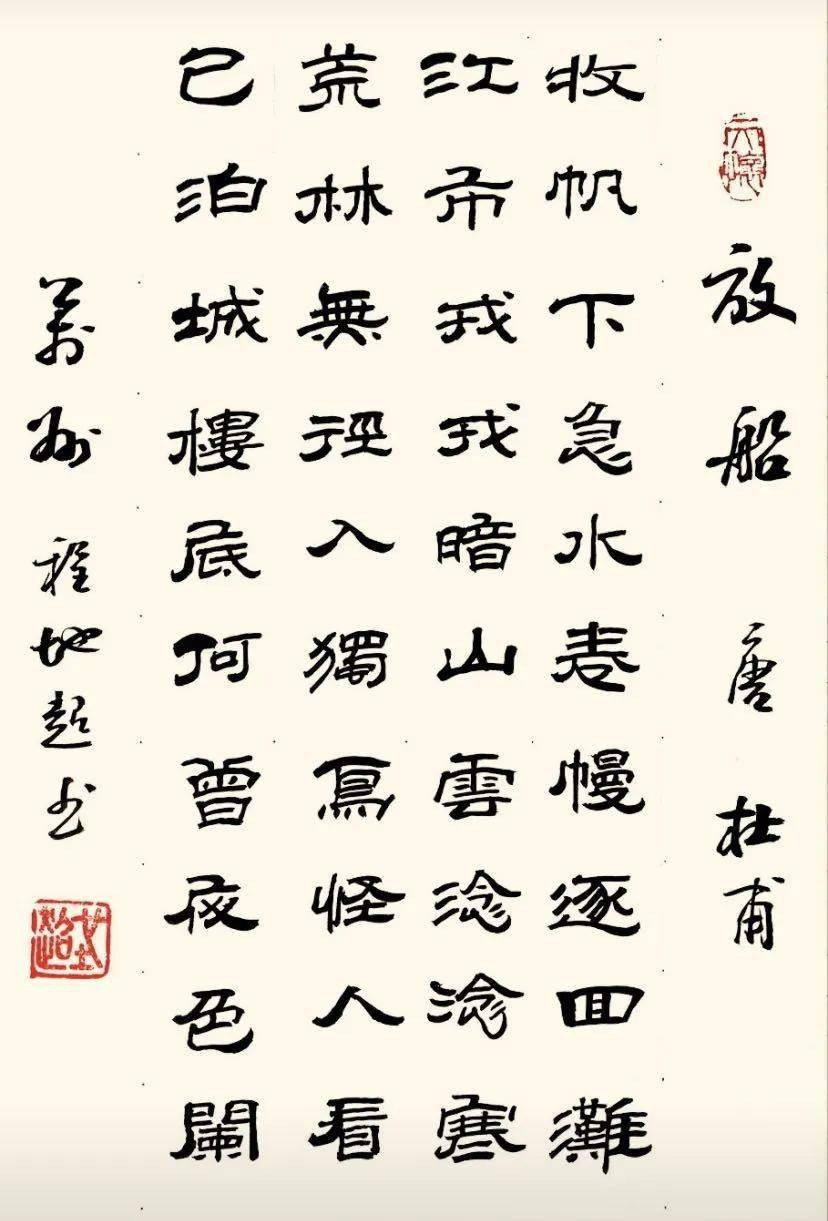 放船 唐 杜甫
收帆下急水卷幔逐回灘
江市戎戎暗山雲淰淰寒
荒林無徑入獨鳥怪人看
已泊城樓底何曾夜色闌
萬州 程地超书